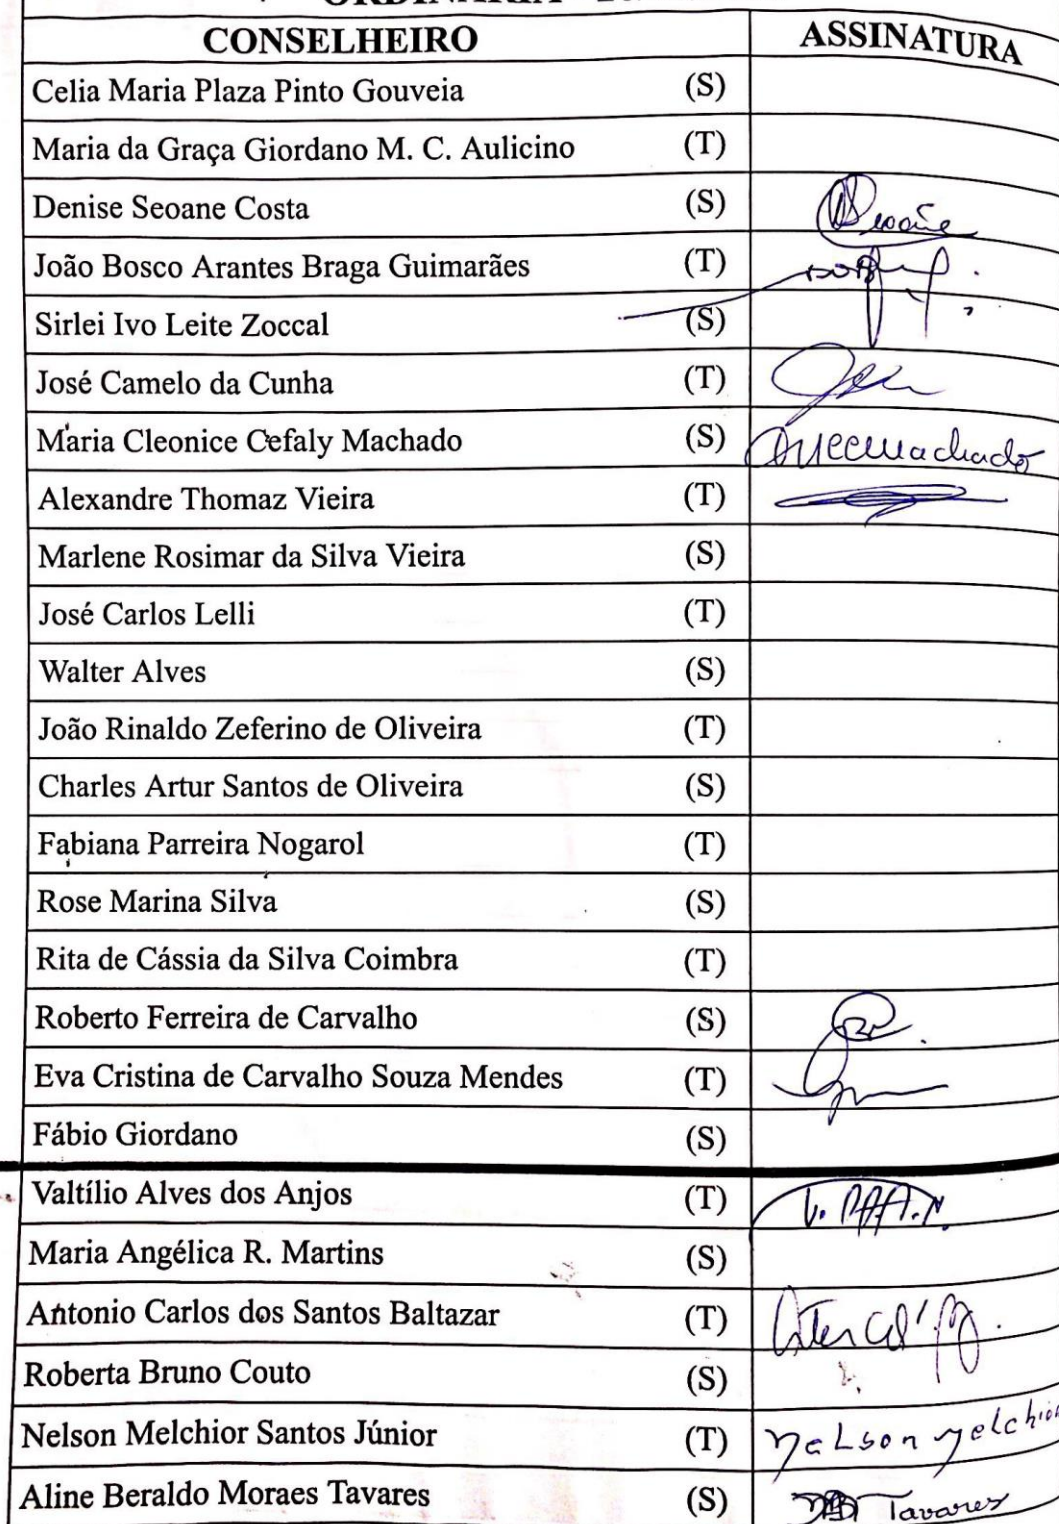 ORDINÁRIA
CONSELHEIRO ASSINATURA
Celia Maria Plaza Pinto Gouveia (S)
Maria da Graça Giordano M. C. Aulicino (T)
Denise Seoane Costa (S) Seoane
João Bosco Arantes Braga Guimarães (T)
Sirlei Ivo Leite Zoccal (S)
José Camelo da Cunha (T)
Maria Cleonice Cefaly Machado (S)
Alexandre Thomaz Vieira (T)
Marlene Rosimar da Silva Vieira (S)
José Carlos Lelli (T)
Walter Alves (S)
João Rinaldo Zeferino de Oliveira (T)
Charles Artur Santos de Oliveira (S)
Fabiana Parreira Nogarol (T)
Rose Marina Silva (S)
Rita de Cássia da Silva Coimbra (T)
Roberto Ferreira de Carvalho (S)
Eva Cristina de Carvalho Souza Mendes (T)
Fábio Giordano (S)
Valtílio Alves dos Anjos (T)
Maria Angélica R. Martins (S)
Antonio Carlos dos Santos Baltazar (T)
Roberta Bruno Couto (S)
Nelson Melchior Santos Júnior (T) Nelson Melchior
Aline Beraldo Moraes Tavares (S) Tavares